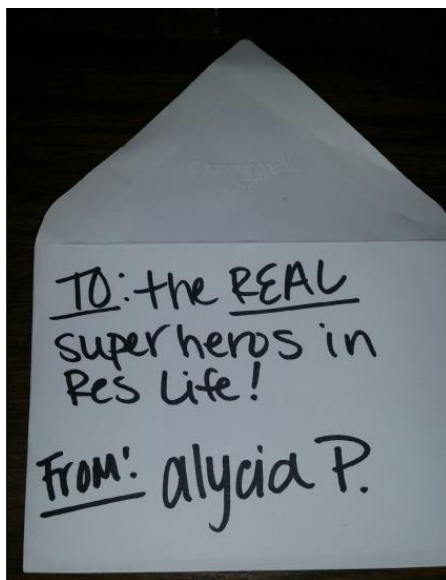 TO: the REAL
superheros in
Res Life!
From: alycia P.